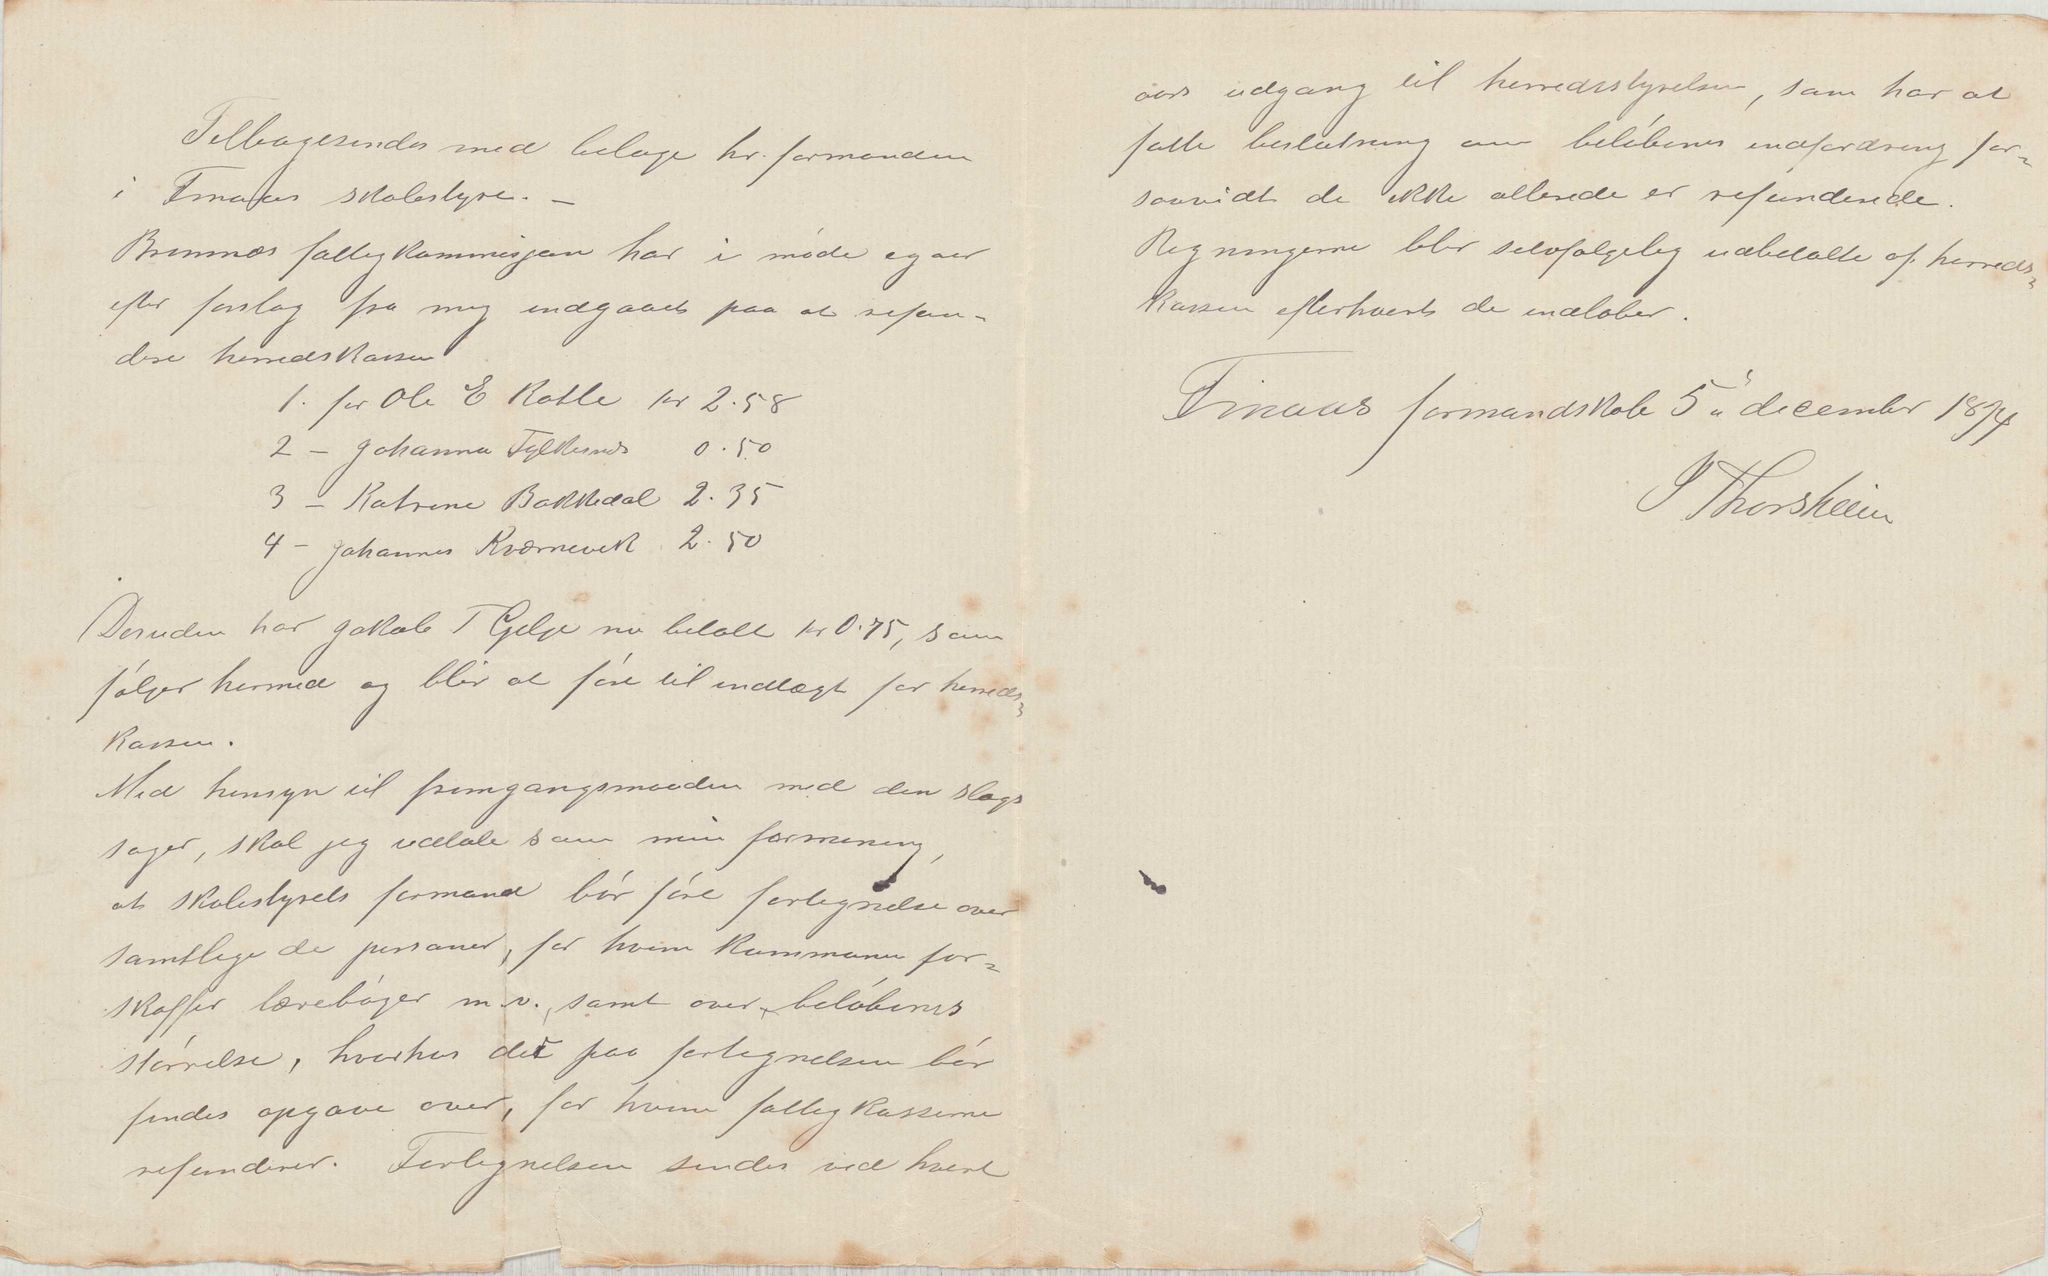 Tilbagesendes med bilage hr. formanden
i Finaas skolestyre. –
Bremnæs fattigkommisjon har i møde igaar
efter forslag fra mig indgaaet paa at refun-
dere herredskassen
1. for Ole E Kolle kr 2.58
2 – Johanna Fylkesnes 0.50
3 – Katrine Bakkedal 2.35
4 – Johannes Kværnevik 2.50
Desuden har Jakob T Gjelje nu betalt kr 0.75, som
følger hermed og blir at føre til indtægt for herreds-
kassen.
Med hensyn til fremgangsmaaden med den slags
sager, skal jeg udtale som min formening,
at skolestyrets formand bør føre fortegnelse over
samtlige de personer, for hvem kommunen for-
skaffer lærebøger m.v., samt over beløbenes
størrelse, hvorhos det paa fortegnelsen bør
findes opgave over, for hvem fattigkasserne
refunderer. Fortegnelsen sendes ved hvert
aars udgang til herredsstyrelsen, som har at
fatte beslutning om beløbenes indfordring for-
saavidt de ikke allerede er refunderede.
Regningerne blir selvfølgelig udbetalte af herreds-
kassen efterhvert de indløber.
Finaas formandskab 5 december 1894
J Thorsheim